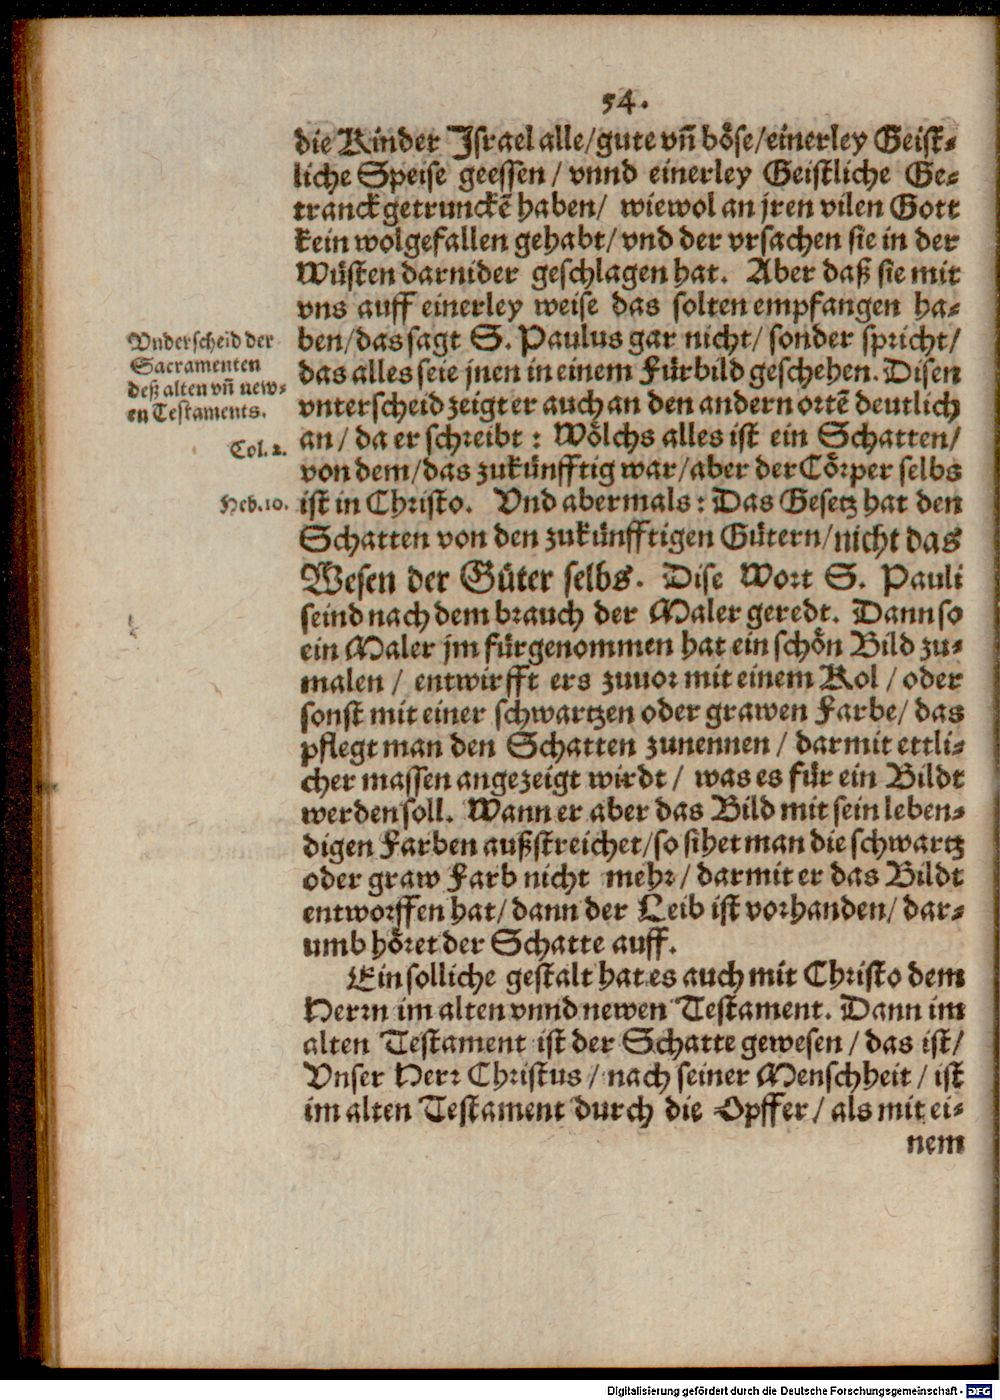 54.
die Kinder Israel alle/gute vñ böse/einerley Geist-
liche Speise geessen/ vnnd einerley Geistliche Ge-
tranck getrunckẽ haben/ wiewol an jren vilen Gott
kein wolgefallen gehabt/ vnd der vrsachen sie in der
Wüsten darnider geschlagen hat. Aber daß sie mit
vns auff einerley weise das solten empfangen ha-
ben/das sagt S. Paulus gar nicht/ sonder spricht/
das alles seie jnen in einem Fürbild geschehen. Disen
vnterscheid zeigt er auch an den andern ortẽ deutlich
an/ da er schreibt: Wölchs alles ist ein Schatten/
von dem/das zukünfftig war/aber der Cörper selbs
ist in Christo. Vnd abermals: Das Gesetz hat den
Schatten von den zukünfftigen Gütern/nicht das
Wesen der Güter selbs. Dise Wort S. Pauli
seind nach dem brauch der Maler geredt. Dann so
ein Maler jm fürgenommen hat ein schön Bild zu-
malen/ entwirfft ers zuuor mit einem Kol/ oder
sonst mit einer schwartzen oder grawen Farbe/ das
pflegt man den Schatten zunennen/ darmit ettli-
cher massen angezeigt wirdt/ was es für ein Bildt
werden soll. Wann er aber das Bild mit sein leben-
digen Farben außstreichet/so sihet man die schwartz
oder graw Farb nicht mehr/ darmit er das Bildt
entworffen hat/ dann der Leib ist vorhanden/ dar-
umb höret der Schatte auff.
Ein solliche gestalt hat es auch mit Christo dem
Herrn im alten vnnd newen Testament. Dann im
alten Testament ist der Schatte gewesen/ das ist/
Vnser Herr Christus/ nach seiner Menschheit/ ist
im alten Testament durch die Opffer/ als mit ei-
nem
Vnderscheid der
Sacramenten
deß alten vñ new-
en Testaments.
Col. 2.
Heb. 10.
Digitalisierung gefördert durch die Deutsche Forschungsgemeinschaft - DFG